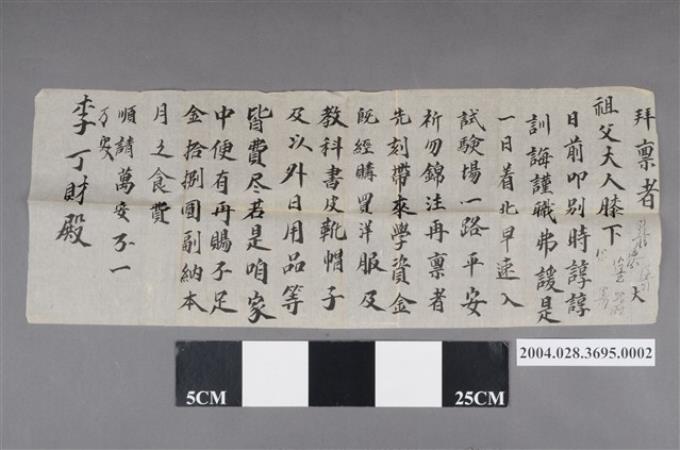 拜稟者 大
祖父大人膝下
日前叩別時諄諄
訓誨謹職弗諼是
一日着北早速入
試驗場一路平安
祈勿錦注再稟者
先刻帶來學資金
既經購買洋服及
教科書皮靴帽子
及以外日用品等
皆費尽若是咱家
中便有再賜不足
金拾捌圓副納本
月之食費
順請萬安不一
李丁財殿
5CM
25CM
2004.028.3695.0002